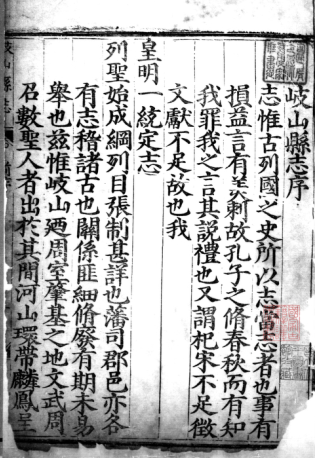 岐山縣志序
志惟古列國之史所以志當志者也事有
損益言有筞剩故孔子之脩春秋而有知
我罪我之言其説禮也又謂杞宋不足徵
文獻不足故也我
皇明一統定志
列聖始成綱列目張制甚詳也藩司郡邑亦各
有志稽諸古也關係匪細脩廢有期未易
舉也兹惟岐山廼周室肇基之地文武周
召數聖人者出於其間河山環帶麟鳳呈